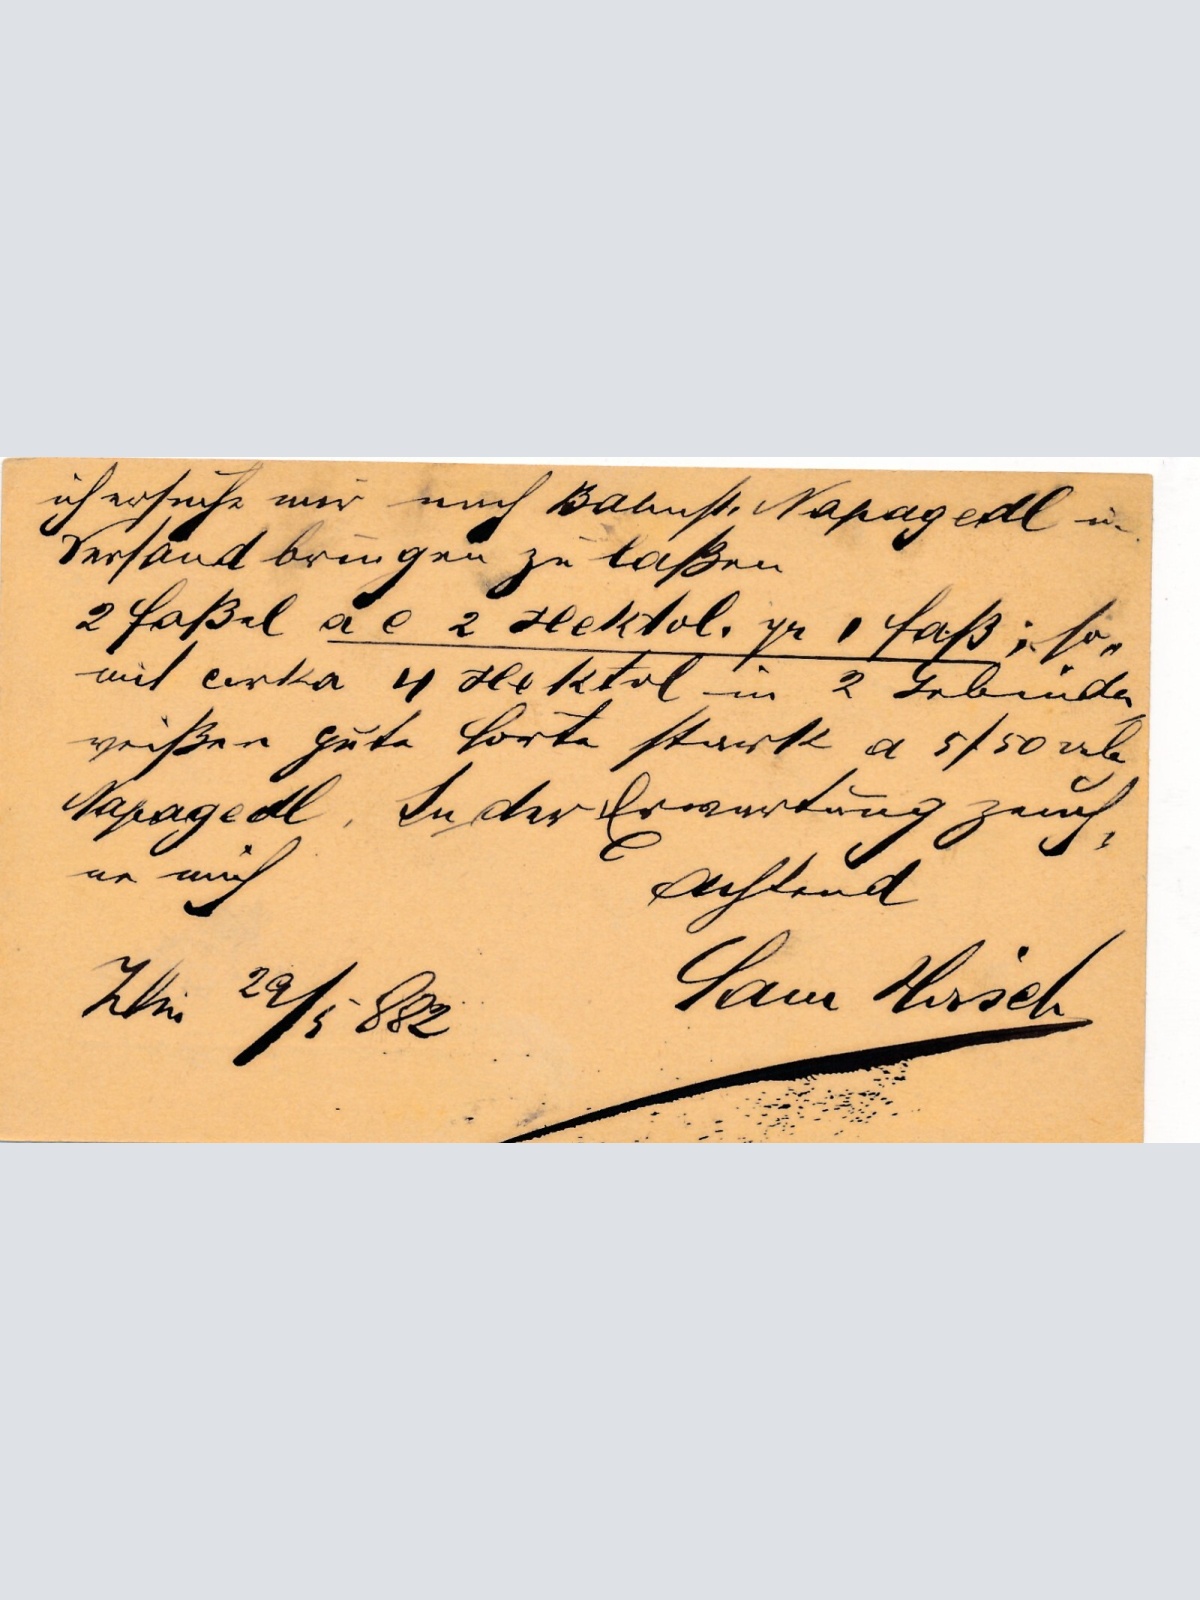 ich ersuche mir nach Bahnst. Napagedl in
Versand bringen zu laßen
2 faßel a c 2 Hektol. pr 1 faß; so„
mit cirka 4 Hektol in 2 Gebinde
weißen gute Sorte stark a 5/50
Napagedl. In der Erwartung zeich,
ne mich
Achtend
Zlin 29/5 882
Sam Hirsch